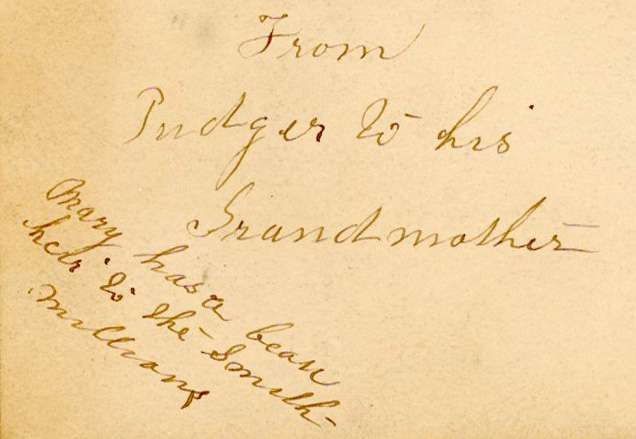 From
Pudger to his
Grandmother
Mary has a beau
heir to the Smith
millions